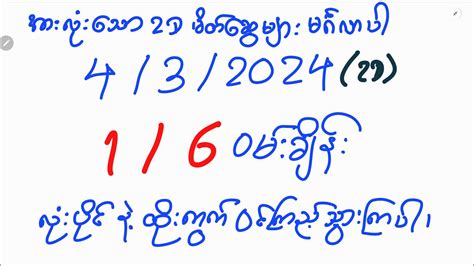 အားလုံးသော 2D မိတ်ဆွေများ မင်္ဂလာပါ
4 / 3 / 2024 (2D)
1 / 6 ဝမ်းချိန်း
လုံးပိုင် နဲ့ ထိုးကွက် ဝင်ကြည့်သွားကြပါ၊